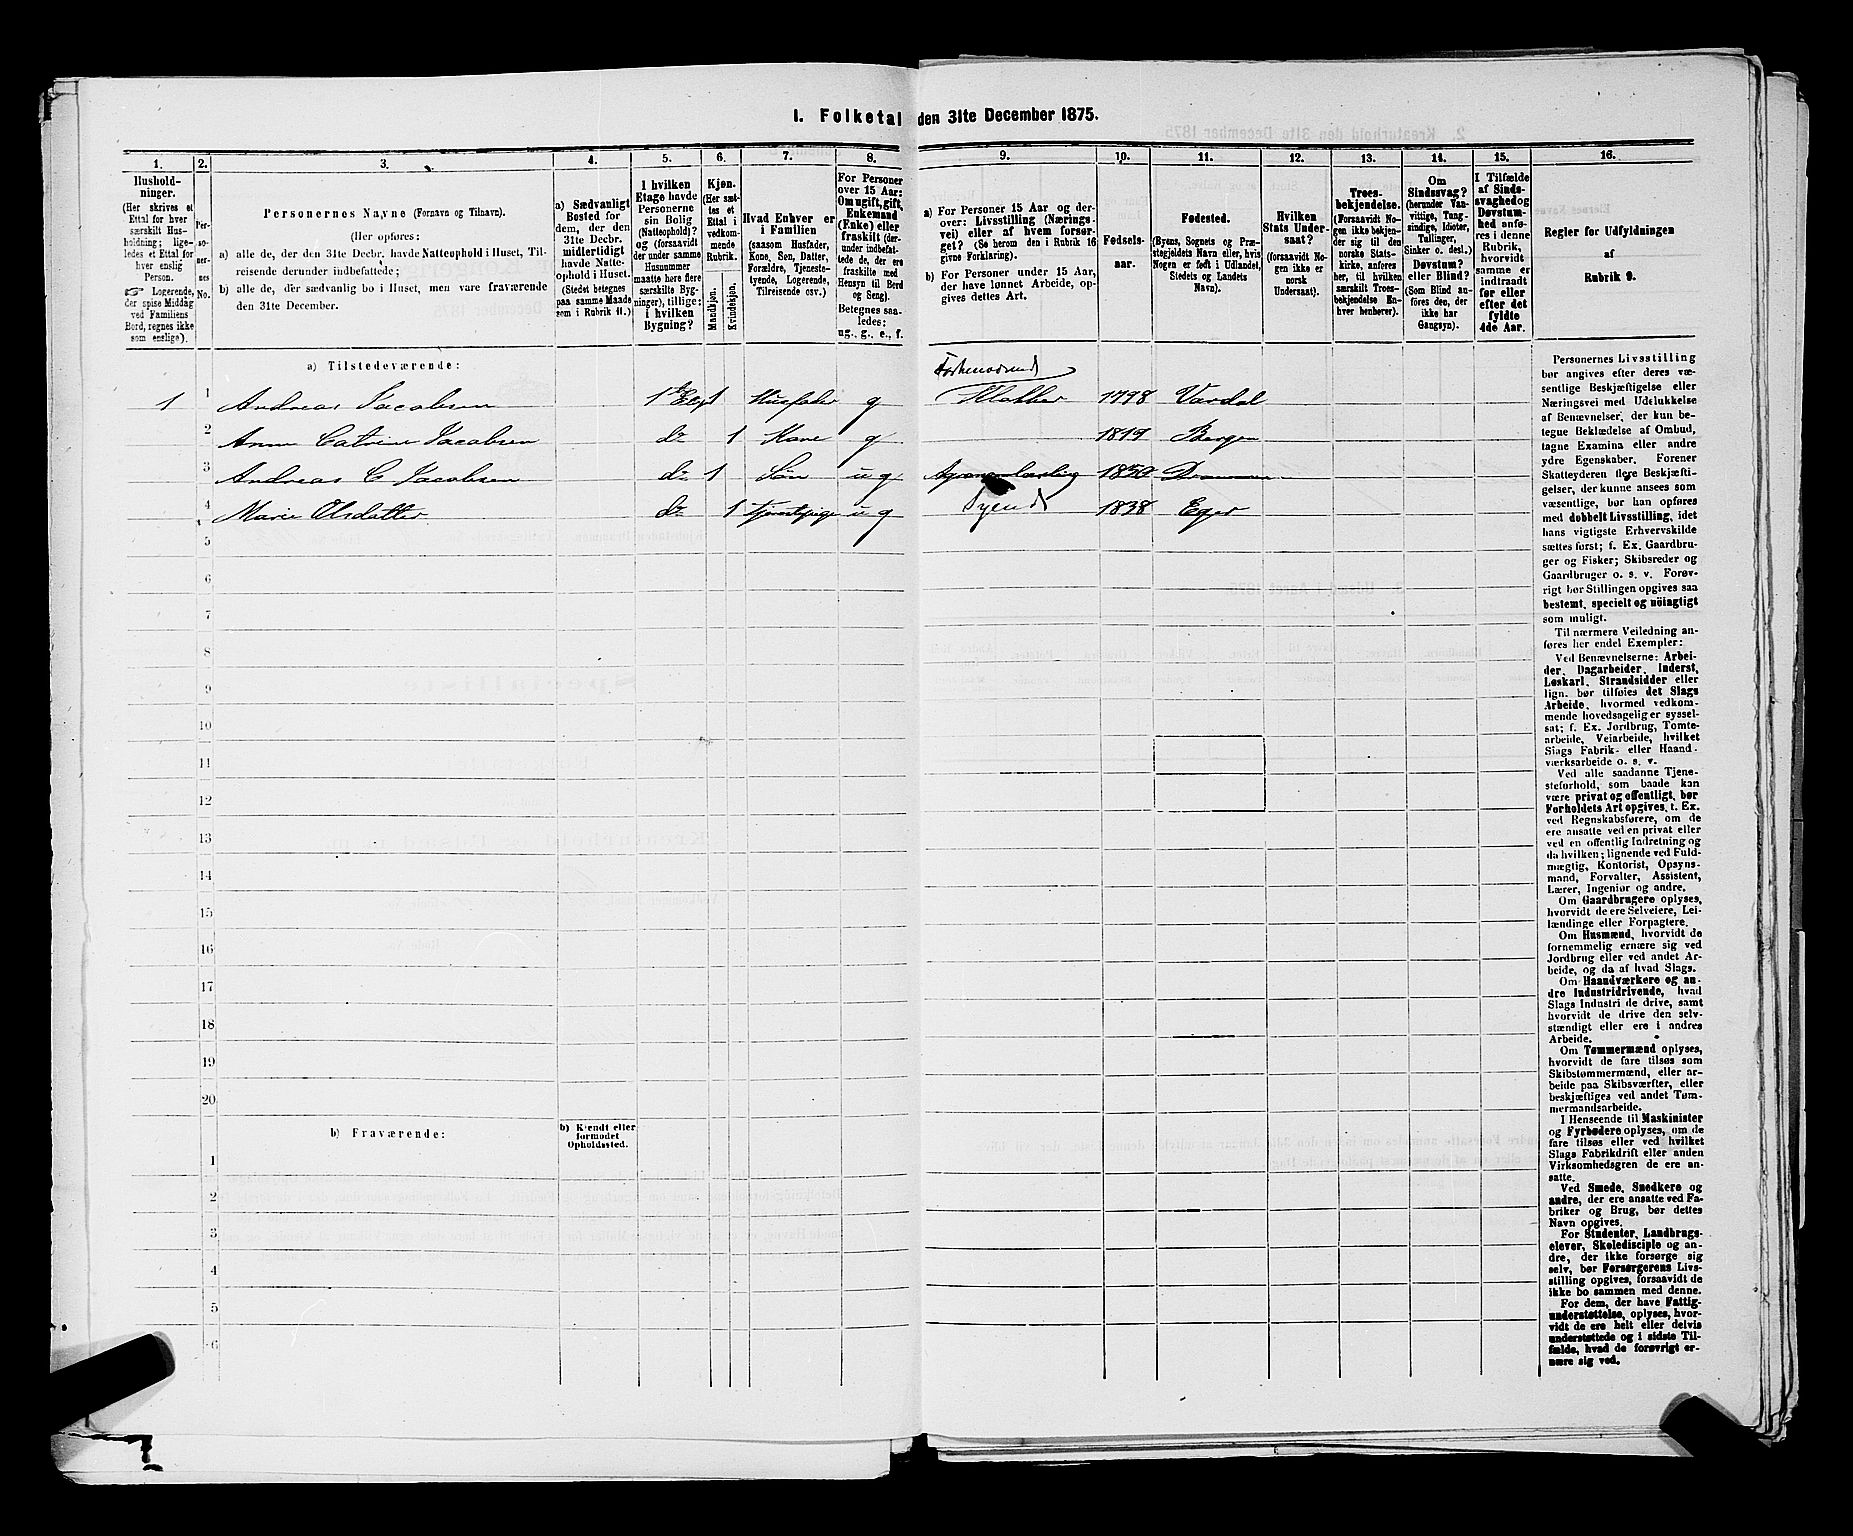 1. Folketal den 31te December 1875.
1. 2. 3. 4. 5. 6. 7. 8. 9. 10. 11. 12. 13. 14. 15. 16.
Husholdninger.
(Her skrives et
Ettal for hver
særskilt Husholdning;
ligeledes et Ettal for
hver enslig
Person.
☞ Logerende,
der spise Middag
ved Familiens
Bord, regnes ikke
som enslige).
Personernes No.
Personernes Navne (Fornavn og Tilnavn).
(Her opføres:
a) alle de, der den 31te Decbr. havde Natteophold i Huset, Tilreisende
derunder indbefattede;
b) alle de, der sædvanlig bo i Huset, men vare fraværende
den 31te December.
a) Sædvanligt
Bosted for
dem, der den
31te Decbr.
midlertidigt
havde Natteophold
i Huset.
(Stedet betegnes
paa samme Maade
som i Rubrik 11.)
I hvilken
Etage havde
Personerne
sin Bolig
(Natteophold)?
og (forsaavidt
der under samme
Husnummer
maatte høre flere
særskilte Bygninger),
tillige:
i hvilken
Bygning?
Kjøn.
(Her sættes
et
Ettal i
vedkommende
Rubrik.
Mandkjøn.
Kvindekjøn.
Hvad Enhver er
i Familien
(saasom Husfader,
Kone, Søn, Datter,
Forældre, Tjenestetyende,
Logerende,
Tilreisende osv.)
For Personer
over 15 Aar:
Om ugift, gift,
Enkemand
(Enke) eller
fraskilt (derunder
indbefattede
de, der ere
fraskilte med
Hensyn til Bord
og Seng).
Betegnes saaledes:
ug., g., e., f.
a) For Personer 15 Aar og derover:
Livsstilling (Næringsvei)
eller af hvem forsørget?
(Se herom den i Rubrik 16
givne Forklaring).
b) For Personer under 15 Aar,
der have lønnet Arbeide, opgives
dettes Art.
Fødselsaar.
Fødested.
(Byens, Sognets og Præstegjeldets
Navn eller, hvis
Nogen er født i Udlandet,
Stedets og Landets
Navn).
Hvilken
Stats Undersaat?
(forsaavidt Nogen
ikke er
norsk
Undersaat).
Troesbekjendelse.
(Forsaavidt Nogen
ikke bekjender
sig til den
norske Statskirke,
anføres
her, til hvilken
særskilt Troesbekjendelse
Enhver
henhører).
Om
Sindssvag?
(herunder Vanvittige,
Tungsindige,
Idioter,
Tullinger,
Sinker o. desl.)
Døvstum?
eller Blind?
(Som Blind anføres
den, der
ikke har
Gangsyn).
I Tilfælde
af Sindssvaghed
og
Døvstumhed
anføres
i denne
Rubrik,
hvorvidt
samme er
indtraadt
før eller
efter det
fyldte
4de Aar.
Regler for Udfyldningen
af
Rubrik 9.
a) Tilstedeværende:
Forhenværend
1 1 Andreas Jacobsen 1ste Etg 1 Husfader g 1798 Vardal
2 Anne Catrine Jacobsen do 1 Kone g 1819 Bergen
3 Andreas C Jacobsen do 1 Søn ug 1850 Drammen
4 Marie Olsdatter do 1 Tjenestpige ug Tyende 1838 Eger
5
6
7
8
9
10
11
12
13
14
15
16
17
18
19
20
b) Fraværende:
b) Kjendt eller
formodet
Opholdssted.
1
2
3
4
5
6
Personernes Livsstilling
bør angives efter deres væsentlige
Beskjæftigelse eller
Næringsvei med Udelukkelse
af Benævnelser, der kun betegne
Beklædelse af Ombud,
tagne Examina eller andre
ydre Egenskaber. Forener
Skatteyderen flere Beskjæftigelser,
der kunne ansees som
væsentlige, bør han opføres
med dobbelt Livsstilling, idet
hans vigtigste Erhvervskilde
sættes først; f. Ex. Gaardbruger
og Fisker; Skibsreder og
Gaardbruger o. s. v. Forøvrigt
bør Stillingen opgives saa
bestemt, specielt og nöiagtigt
som muligt.
Til nærmere Veiledning anføres
her endel Exempler:
Ved Benævnelserne: Arbeider,
Dagarbeider, Inderst,
Løskarl, Strandsidder eller
lign. bør tilføies det Slags
Arbeide, hvormed vedkommende
hovedsagelig er sysselsat;
f. Ex. Jordbrug, Tomtearbeide,
Veiarbeide, hvilket
Slags Fabrik- eller Haandværksarbeide
o. s. v.
Ved alle saadanne Tjenesteforhold,
som baade kan
være privat og offentligt, bør
Forholdets Art opgives, t. Ex.
ved Regnskabsførere, om de
ere ansatte ved en privat eller
ved en offentlig Indretning og
da hvilken; lignende ved Fuldmægtig,
Kontorist, Opsynsmand,
Forvalter, Assistent,
Lærer, Ingeniør og andre.
Om Gaardbrugere oplyses,
hvorvidt de ere Selveiere, Leilændinge
eller Forpagtere.
Om Husmænd, hvorvidt de
fornemmelig ernære sig ved
Jordbrug eller ved andet Arbeide,
og da af hvad Slags.
Om Haandværkere og andre
Industridrivende, hvad
Slags Industri de drive, samt
hvorvidt de drive den selvstændigt
eller ere i andres
Arbeide.
Om Tømmermænd oplyses,
hvorvidt de fare tilsøs som
Skibstømmermænd, eller arbeide
paa Skibsværfter, eller
beskjæftiges ved andet Tømmermandsarbeide.
I Henseende til Maskinister
og Fyrbødere oplyses, om de
fare tilsøs eller ved hvilket
Slags Fabrikdrift eller anden
Virksomhedsgren de ere ansatte.
Ved Smede, Snedkere og
andre, der ere ansatte ved Fabriker
og Brug, bør dettes
Navn opgives.
For Studenter, Landbrugselever,
Skoledisciple og andre,
der ikke forsørge sig
selv, bør Forsørgerens Livsstilling
opgives, forsaavidt de
ikke bo sammen med denne.
For dem, der have Fattigunderstøttelse,
oplyses, hvorvidt
de ere helt eller delvis
understøttede og i sidste Tilfælde,
hvad de forøvrigt ernære
sig ved.